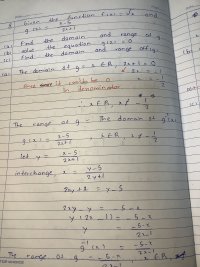 Given the function f(x) = √x and
g(x) = x-5 / 2x+1
(a) Find the domain and range of g
(b) solve the equation g(x) = 0
(c) Find the domain and range of fg.
(a) The domain of g = x ∈ R, 2x+1 = 0
2x = -1
it could be 0
in denominator
∴ x ∈ R, x ≠ -1/2
The range of g = The domain of g⁻¹(x)
g(x) = x-5 / 2x+1 , x ∈ R, x ≠ -1/2
let y = x-5 / 2x+1
interchange, x = y-5 / 2y+1
2xy + x = y-5
2xy - y = -5-x
y(2x-1) = -5-x
y = -5-x / 2x-1
g⁻¹(x) = -5-x / 2x-1
The range of g = -5-x / 2x-1 , x ∈ R, x ≠